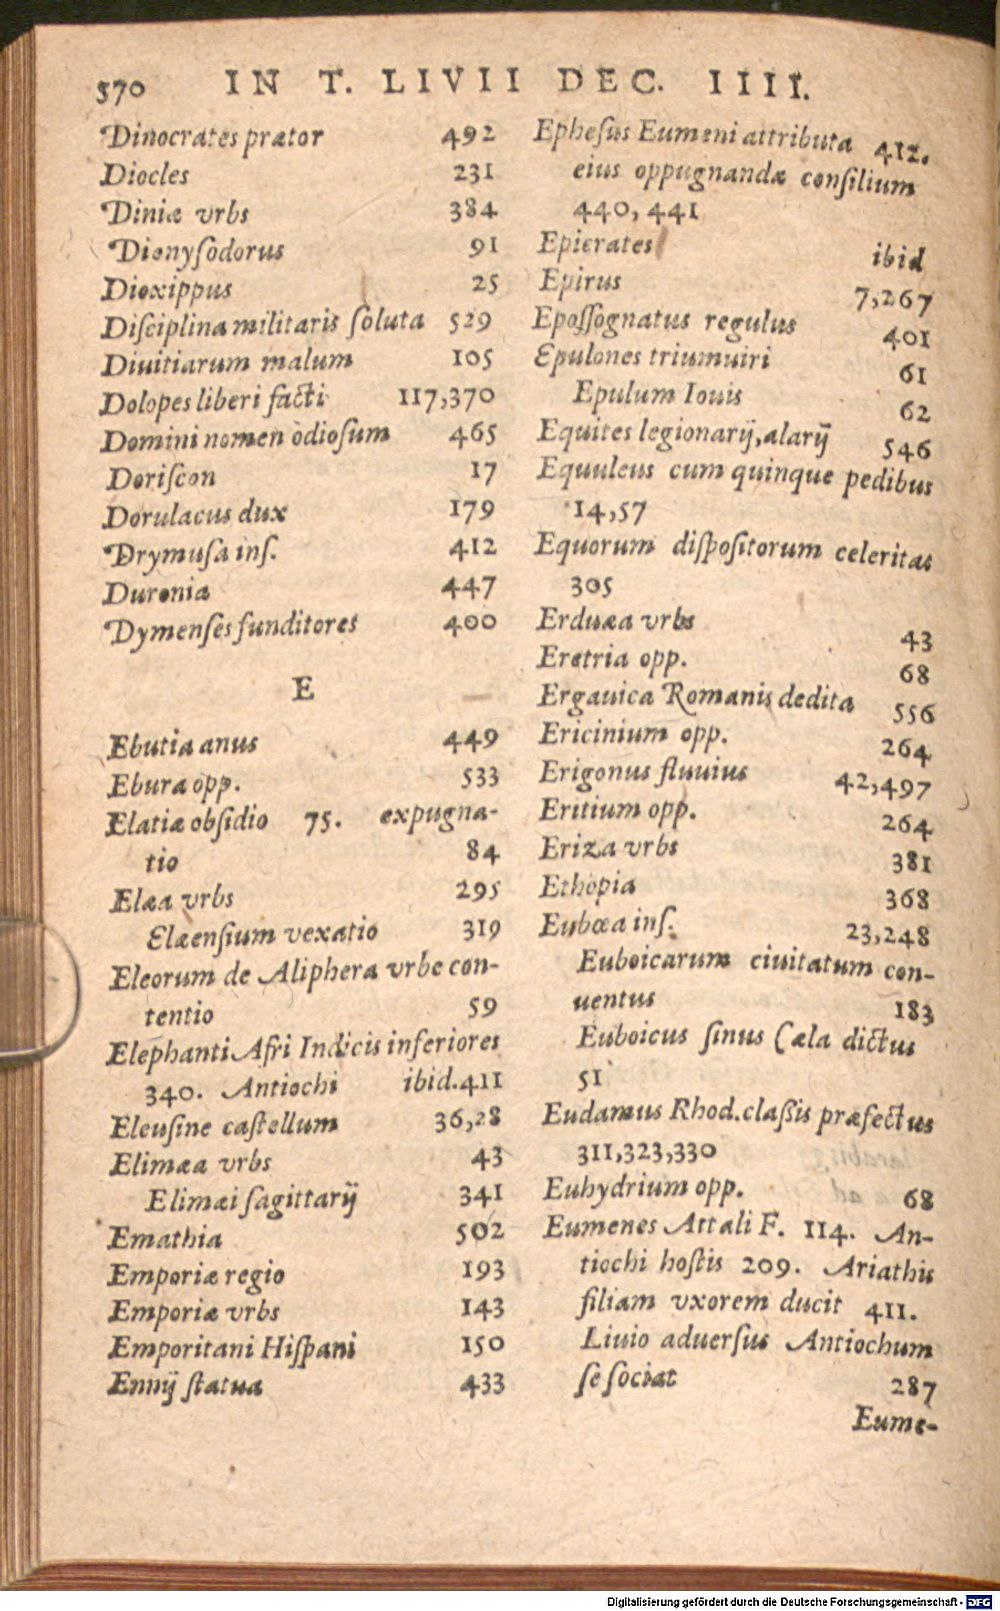 570 IN T. LIVII DEC. IIII.
Dinocrates prætor 492
Diocles 231
Diniæ vrbs 384
Dionysodorus 91
Dioxippus 25
Disciplina militaris soluta 529
Diuitiarum malum 105
Dolopes liberi facti 117,370
Domini nomen odiosum 465
Doriscon 17
Dorulacus dux 179
Drymusa ins. 412
Duronia 447
Dymenses funditores 400
E
Ebutia anus 449
Ebura opp. 533
Elatiæ obsidio 75. expugna-
tio 84
Elæa vrbs 295
Elæensium vexatio 319
Eleorum de Aliphera vrbe con-
tentio 59
Elephanti Afri Indicis inferiores
340. Antiochi ibid.411
Eleusine castellum 36,28
Elimæa vrbs 43
Elimæi sagittarij 341
Emathia 502
Emporiæ regio 193
Emporiæ vrbs 143
Emporitani Hispani 150
Ennij statua 433
Ephesus Eumeni attributa 412.
eius oppugnandæ consilium
440, 441
Epicrates ibid
Epirus 7,267
Epossognatus regulus 401
Epulones triumuiri 61
Epulum Iouis 62
Equites legionarij, alarij 546
Equuleus cum quinque pedibus
14,57
Equorum dispositorum celeritas
305
Erduæa vrbs 43
Eretria opp. 68
Ergauica Romanis dedita 556
Ericinium opp. 264
Erigonus fluuius 42,497
Eritium opp. 264
Eriza vrbs 381
Ethopia 368
Eubœa ins. 23,248
Euboicarum ciuitatum con-
uentus 183
Euboicus sinus Cæla dictus
51
Eudamus Rhod. classis præfectus
311,323,330
Euhydrium opp. 68
Eumenes Attali F. 114. An-
tiochi hostis 209. Ariathis
filiam vxorem ducit 411.
Liuio aduersus Antiochum
se sociat 287
Eume-
Digitalisierung gefördert durch die Deutsche Forschungsgemeinschaft - DFG